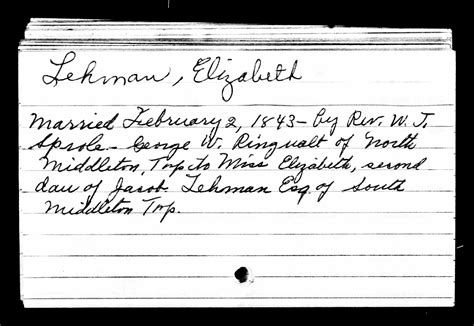 Lehman, Elizabeth
Married February 2, 1843 - by Rev. W. T.
Sprole - George W. Ringwalt of North
Middleton, Twp to Miss Elizabeth, second
dau of Jacob Lehman Esq of South
Middleton Twp.